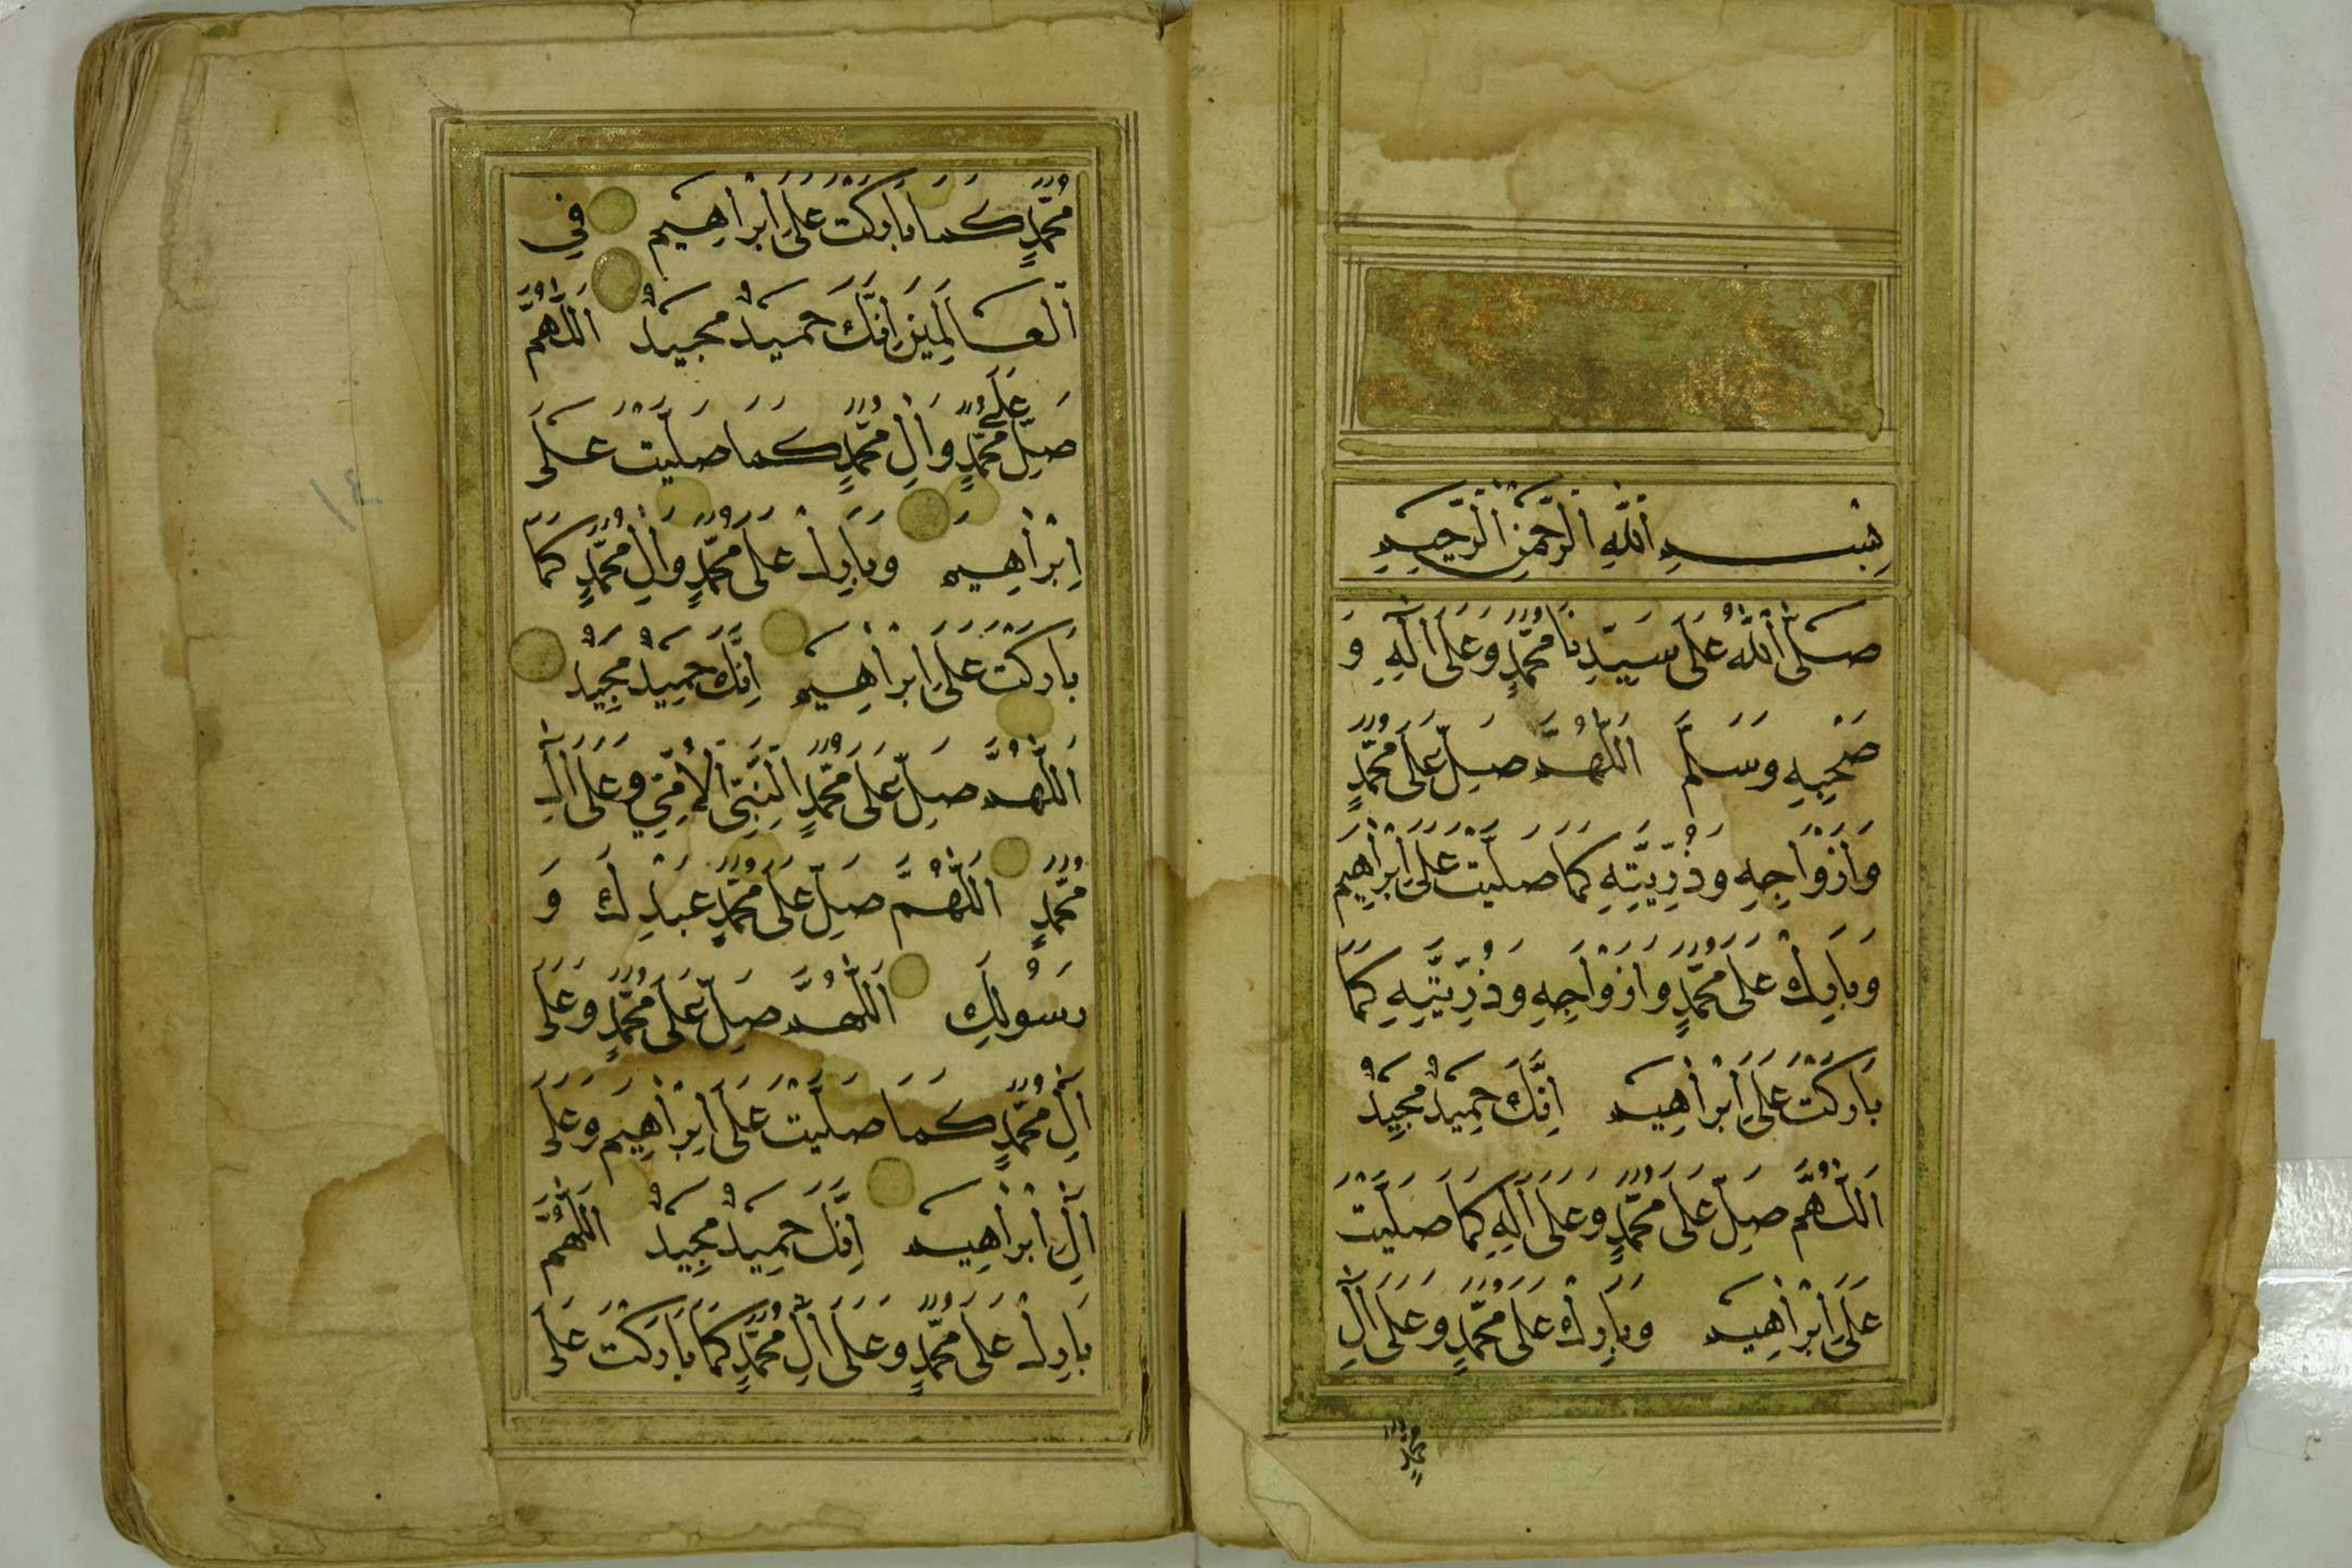 بِسْمِ اللَّهِ الرَّحْمٰنِ الرَّحِيمِ
صَلَّى اللَّهُ عَلَى سَيِّدِنَا مُحَمَّدٍ وَعَلَى آلِهِ وَ
صَحْبِهِ وَسَلَّمَ اَللّٰهُمَّ صَلِّ عَلَى مُحَمَّدٍ
وَأَزْوَاجِهِ وَذُرِّيَّتِهِ كَمَا صَلَّيْتَ عَلَى إِبْرَاهِيمَ
وَبَارِكْ عَلَى مُحَمَّدٍ وَأَزْوَاجِهِ وَذُرِّيَّتِهِ كَمَا
بَارَكْتَ عَلَى إِبْرَاهِيمَ إِنَّكَ حَمِيدٌ مَجِيدٌ
اَللّٰهُمَّ صَلِّ عَلَى مُحَمَّدٍ وَعَلَى آلِهِ كَمَا صَلَّيْتَ
عَلَى إِبْرَاهِيمَ وَبَارِكْ عَلَى مُحَمَّدٍ وَعَلَى آلِ
مُحَمَّدٍ
مُحَمَّدٍ كَمَا بَارَكْتَ عَلَى إِبْرَاهِيمَ فِي
الْعَالَمِينَ إِنَّكَ حَمِيدٌ مَجِيدٌ اَللّٰهُمَّ
صَلِّ عَلَى مُحَمَّدٍ وَآلِ مُحَمَّدٍ كَمَا صَلَّيْتَ عَلَى
إِبْرَاهِيمَ وَبَارِكْ عَلَى مُحَمَّدٍ وَآلِ مُحَمَّدٍ كَمَا
بَارَكْتَ عَلَى إِبْرَاهِيمَ إِنَّكَ حَمِيدٌ مَجِيدٌ
اَللّٰهُمَّ صَلِّ عَلَى مُحَمَّدٍ النَّبِيِّ الْأُمِّيِّ وَعَلَى آلِ
مُحَمَّدٍ اَللّٰهُمَّ صَلِّ عَلَى مُحَمَّدٍ عَبْدِكَ وَ
رَسُولِكَ اَللّٰهُمَّ صَلِّ عَلَى مُحَمَّدٍ وَعَلَى
آلِ مُحَمَّدٍ كَمَا صَلَّيْتَ عَلَى إِبْرَاهِيمَ وَعَلَى
آلِ إِبْرَاهِيمَ إِنَّكَ حَمِيدٌ مَجِيدٌ اَللّٰهُمَّ
بَارِكْ عَلَى مُحَمَّدٍ وَعَلَى آلِ مُحَمَّدٍ كَمَا بَارَكْتَ عَلَى
١٤